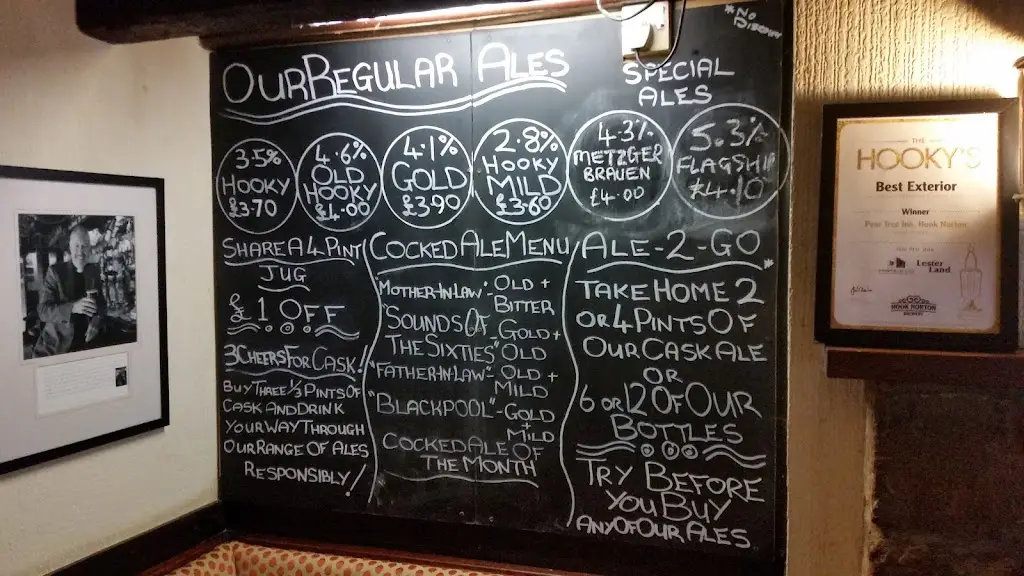 *NO
OUR REGULAR ALES
SPECIAL
ALES
3.5%
HOOKY
£3.70
4.6%
OLD
HOOKY
£4.00
4.1%
GOLD
£3.90
2.8%
HOOKY
MILD
£3.60
4.3%
METZGER
BRAUEN
£4.00
5.3%
FLAGSHIP
£4.10
SHARE A 4 PINT
JUG
£1 OFF
3 CHEERS FOR CASK!
BUY THREE 1/3 PINTS OF
CASK AND DRINK
YOUR WAY THROUGH
OUR RANGE OF ALES
RESPONSIBLY!
COCKED ALE MENU
"MOTHER-IN-LAW"- OLD +
BITTER
SOUNDS OF
THE SIXTIES" GOLD +
OLD
"FATHER-IN-LAW"- OLD +
MILD
"BLACKPOOL"- GOLD
+
MILD
COCKED ALE OF
THE MONTH
ALE-2-GO
TAKE HOME 2
OR 4 PINTS OF
OUR CASK ALE
OR
6 OR 12 OF OUR
BOTTLES
TRY BEFORE
YOU BUY
ANY OF OUR ALES
THE
HOOKY'S
Best Exterior
Winner
Pear Tree Inn, Hook Norton
Lester
Land
HOOK NORTON
BREWERY